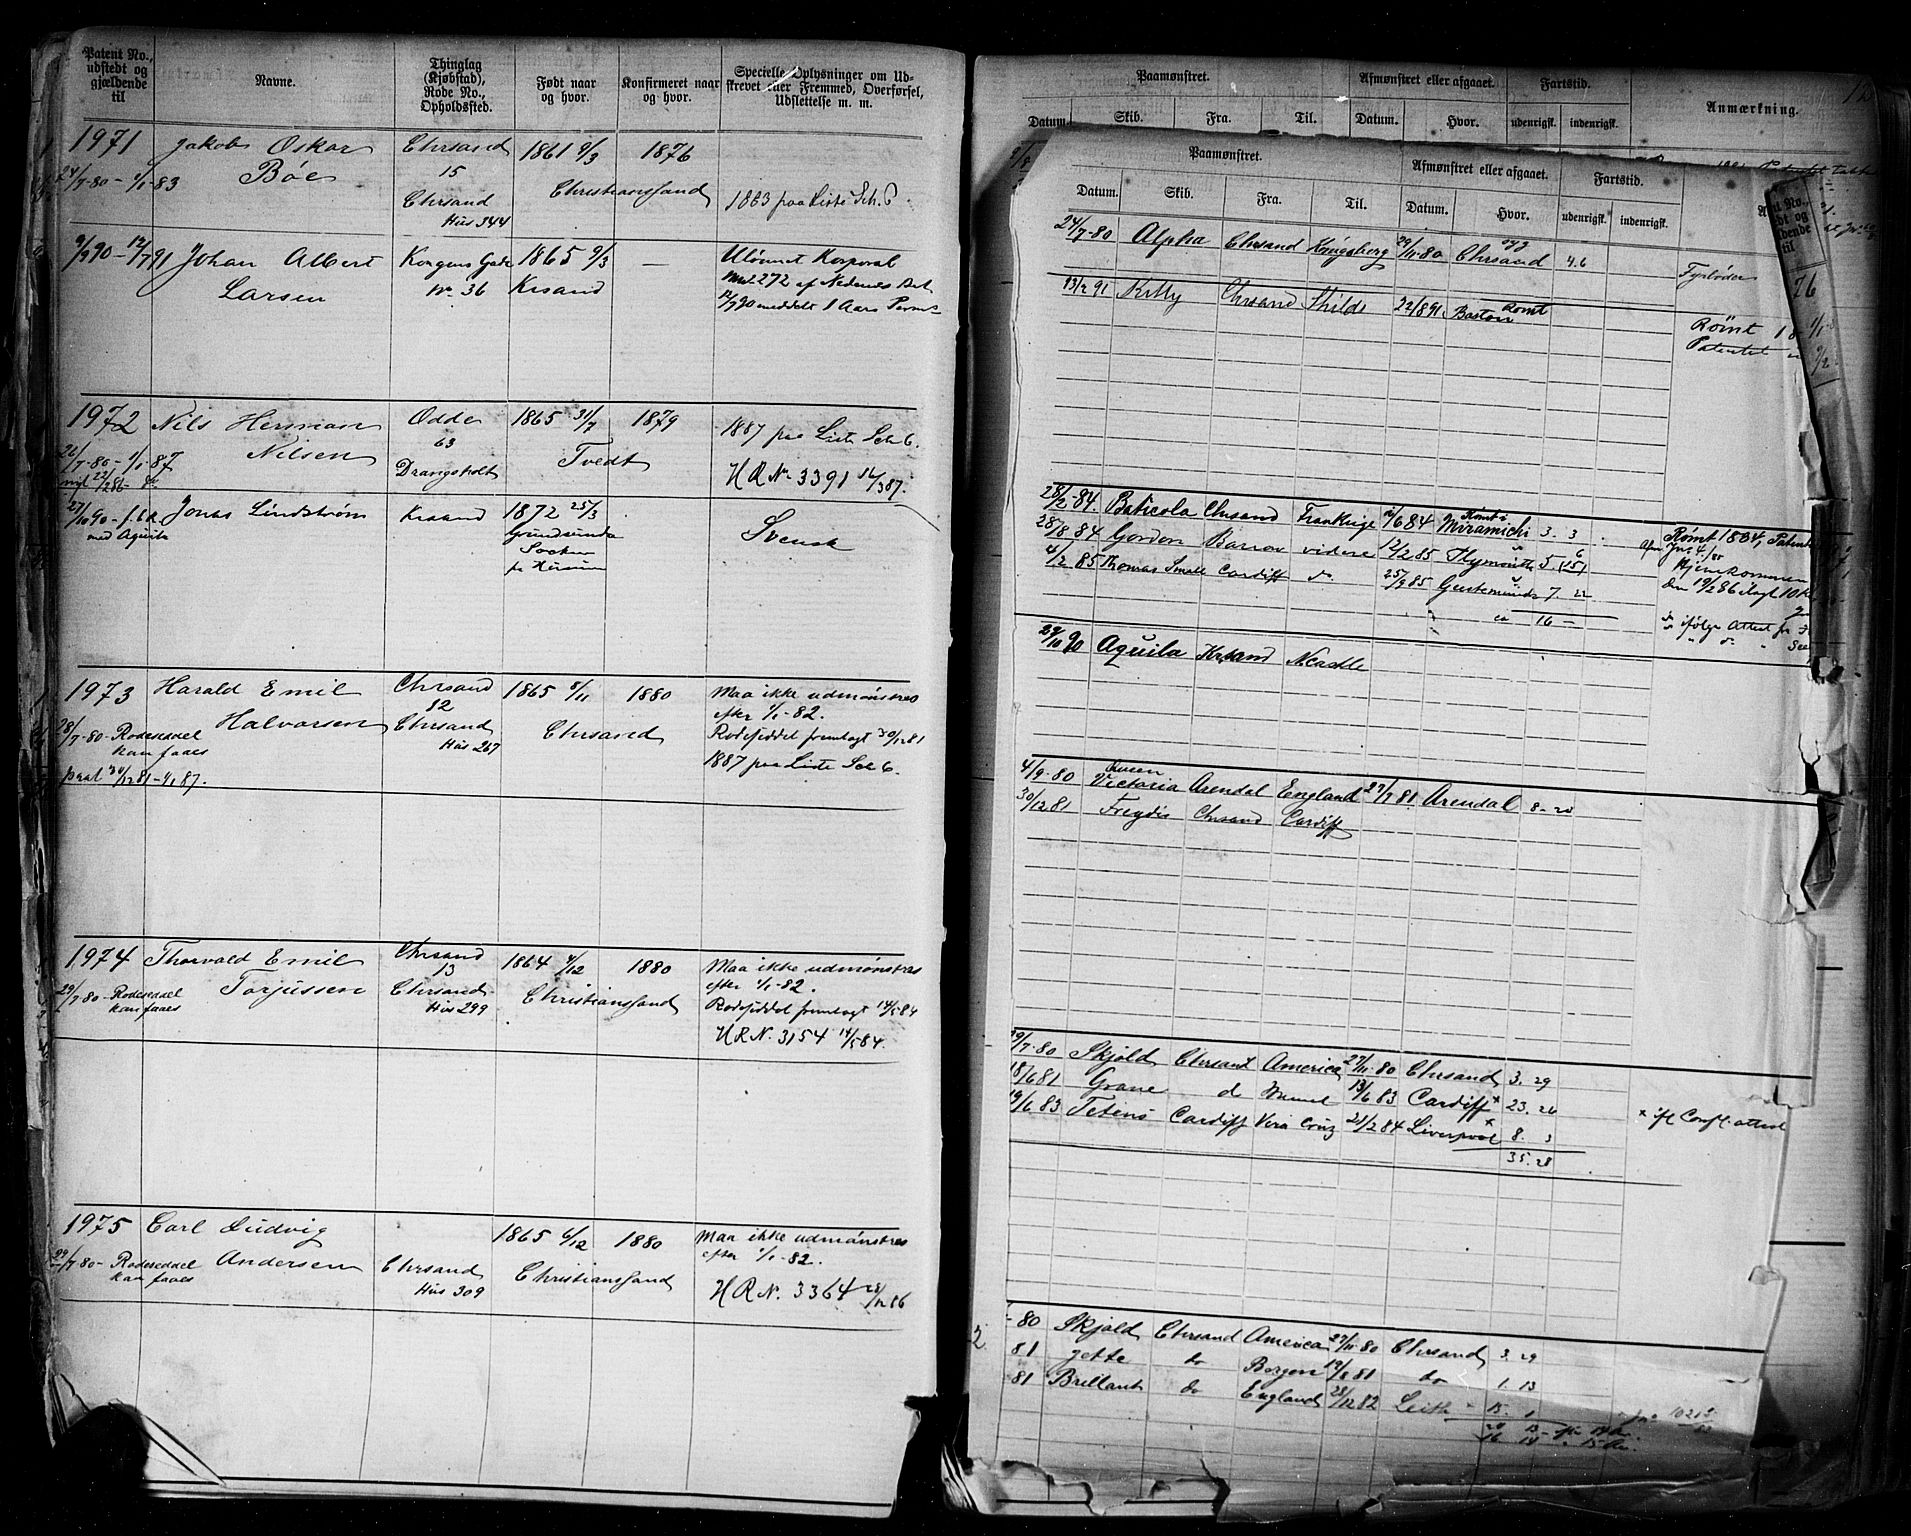 Patent No., udstedt og gjældende til
Navne.
Thinglag (Kjøbstad), Rode No., Opholdssted.
Født naar og hvor.
Konfirmeret naar og hvor.
Specielle Oplysninger om Udskrevet eller Fremmed, Overførsel, Udslettelse m. m.
1971 Jakob Oskar Chrsand 1861 9/3 1876
24/7-80 - 1/1-83 Böe 15 Christianssand
Chrsand 1883 paa Liste Sch. 6
Hus 344
9/9 90 - 12/7 91 Johan Albert Kongens Gade 1865 9/3 — Ulönnet Korporal
Larsen No 36 Krsand 272 af Nedenes Bat.
12/7 90 meddelt 1 Aars
1972 Nils Herman Odde 1865 31/7 1879 1887 paa Liste Sch 6.
26/7-80 - 1/1-87 Nilsen 63 Tvedt
Drangsholt H R No 3391 14/3 87.
27/10 90 - Jonas Lindström Krsand 1872 25/3 Svensk
med Aquila Grundsunda
Socken
1973 Harald Emil Chrsand 1865 8/11 1880 Maa ikke udmönstres
82 efter 1/1-82.
28/7-80 - Rodeseddel Halvorsen Chrsand Chrsand Rodeseddel fremlagt 30/12 81
kan faaes Hus 267 1887 paa Liste Sch 6.
30/12 81 - 1/1 87.
1974 Thorvald Emil Chrsand 1864 4/12 1880 Maa ikke udmönstres
13 efter 1/1-82.
29/7-80 - Rodeseddel Torjussen Chrsand Christianssand Rodeseddel fremlagt 14/5 84
kan faaes Hus 299 H R N. 3154 14/5 84.
1975 Carl Ludvig 1865 6/12 1880 Maa ikke udmönstres
efter 1/1-82.
29/7-80 - Rodeseddel Andersen Chrsand Christianssand
kan faaes Hus 309 H R N. 3364 28/12 86
Paamønstret.
Afmønstret eller afgaaet.
Fartstid.
Anmærkning.
Datum. Skib. Fra. Til. Datum. Hvor. udenrigsk. indenrigsk.
Paamønstret.
Afmønstret eller afgaaet.
Fartstid.
Datum. Skib. Fra. Til. Datum. Hvor. udenrigsk. indenrigsk.
24/7-80 Alpha Chrsand 29/11-80 Chrsand 4.6 Fyrböder
13/2 91 Kitty Chrsand Shilds 22/8 91 Boston Römt
Römt 18
Patentet
28/2-84. Baticola Chrsand Frankrige 84 Miramichi 3. 3 Römt 1884, Patent
28/8 84 Gordon Barrow videre 12/2 85 Plymouth 5. 6
4/2 85 Thomas Small Cardiff do 25/9 85 Geestemünde 7. 22 Hjemkommen
den 19/2 86
ca 16 — ifölge Attest fr
29/10 90 Aquila Krsand Ncastle
4/9-80 Queen Victoria Arendal England 27/7 81 Arendal 8-20
30/12 81 Freydis Chrsand Cardiff
29/7-80 Skjold Chrsand America 27/11-80 Chrsand 3. 29
18/6 81 Grane d 13/6 83 Cardiff x 23. 26
19/6 83 Tetens Cardiff Vera Cruz 21/2 84 Liverpool x 8. 3 x ifl Consl. attest
35. 28
-80 Skjold Chrsand America 27/11-80 Chrsand 3. 29
81 Jette do Bergen 81 do 1. 13
81 Brillant do England 23/12 82 Leith 15. 1